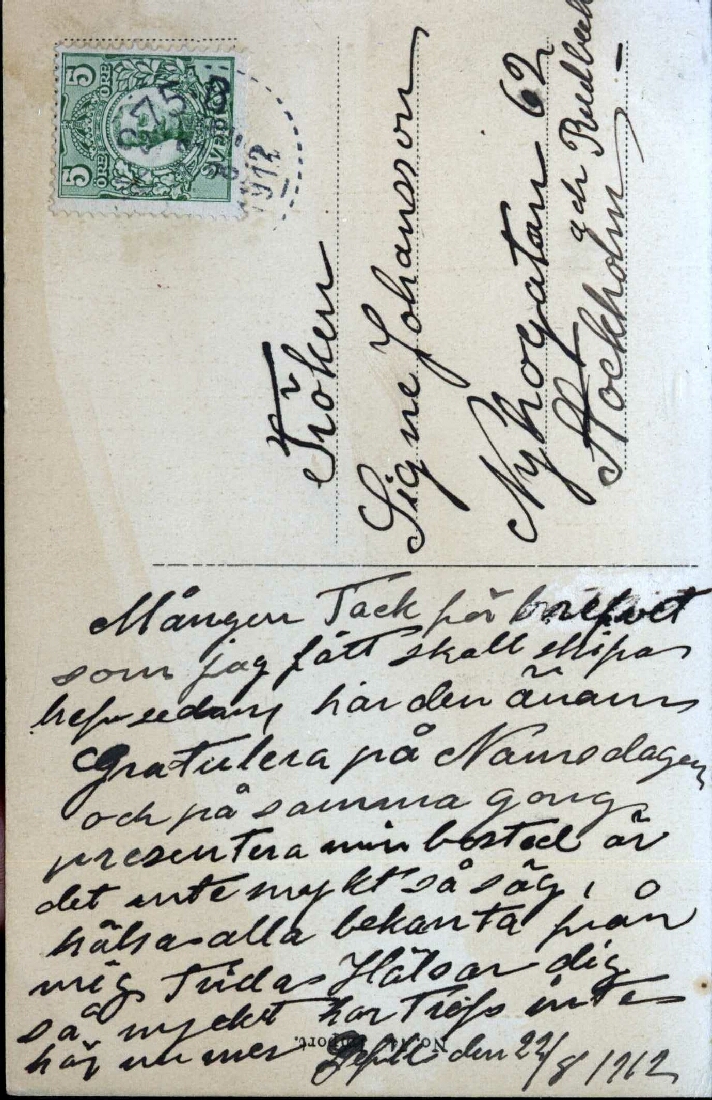 5 ÖRE
5 ÖRE
SVERIGE
1912
Fröken
Signe Johansson
Nyhogatan 62
och
Stockholm
Mången Tack för brefvet
som jag fått skall skifva
bref sedan, har den äran
Gratulera på Namsdagen
och på samma gong
presentera min bostad är
det inte mykt så säg,
hälsa alla bekanta från
mig Tildas Hälsar dig
så mycket har Trefs inte
här nu mer
den 22/8 1912